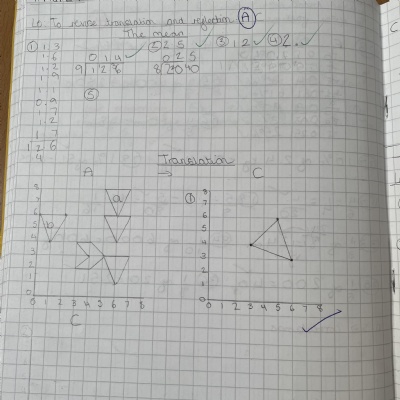 Lo. To revise translation and reflection A
The mean
① 1.3 ② 25 ③ 1.2 ④ 2.
1.6 0 1 4 0 2 5
1.2 9 1 2 6 8 2 0 4 0
1.9
1.1 ⑤
0.9
1.7
1.2
1.7
1 2 6
4
Translation
A → C
8 ① 8
7 a 7
6 6
5 b 5
4 4
3 3
2 2
1 1
0 0
0 1 2 3 4 5 6 7 8 0 1 2 3 4 5 6 7 8
C